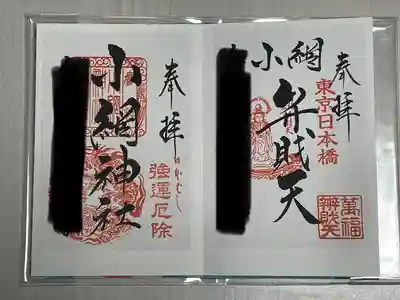 奉拝
小網神社
強運厄除
奉拝
東京日本橋
小網
弁財天
萬福
辨財天